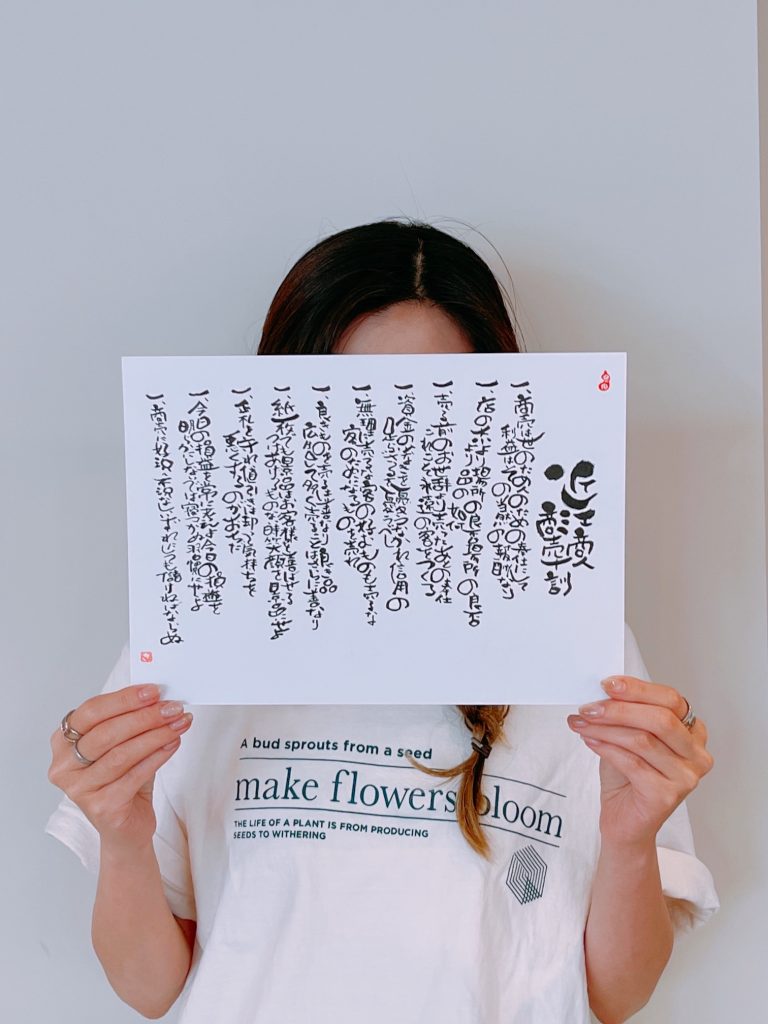 近江商人
商売十訓
一、商売は世のため人のための奉仕にして
利益はその当然の報酬なり
一、店の大小より場所の良否場所の良否
より品の如何
一、売る前のお世辞より売った後の奉仕
これこそ永遠の客をつくる
一、資金の少なきを憂うなかれ信用の
足らざるを憂うべし
一、無理に売るな客の好むものも売るな
客のためになるものを売れ
一、良きものを売るは善なり良き品
広告して多く売ることはさらに善なり
一、紙一枚でも景品はお客様を喜ばせる
つけてあげるものな時笑顔で景品にせよ
一、正札を守れ値引きは却って気持ちを
悪くするのがおちだ
一、今日の損益を常に考えよ今日の損益を
明らかにしないでは寝につかぬ習慣にせよ
一、商売に好況、不況なしいずれにしても儲けねばならぬ
A bud sprouts from a seed
make flowers bloom
THE LIFE OF A PLANT IS FROM PRODUCING
SEEDS TO WITHERING